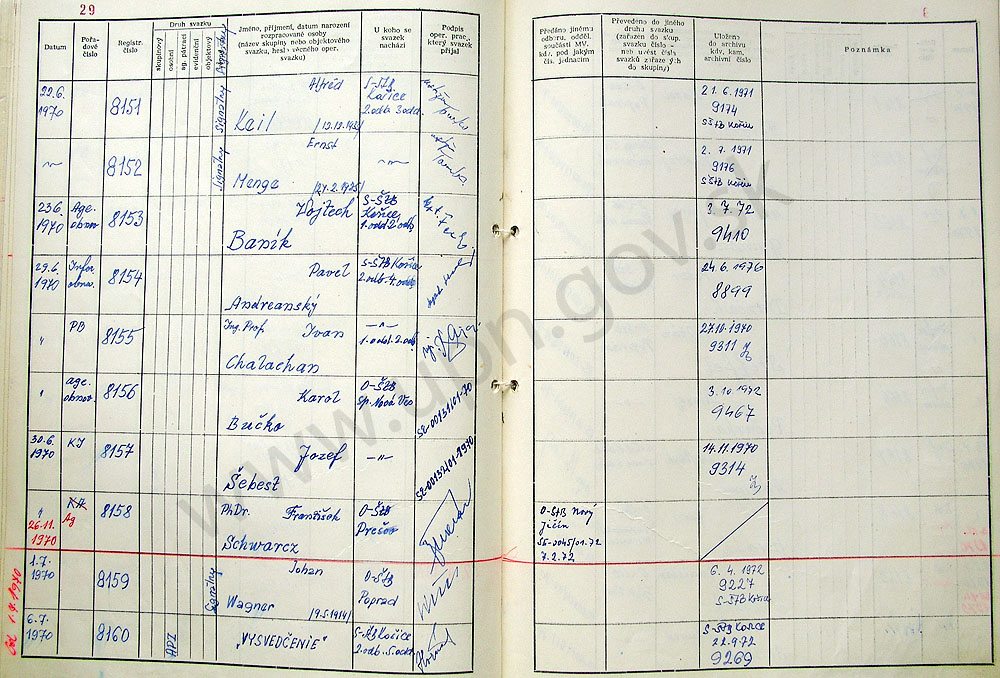 29
Datum
Pořadové číslo
Registr. číslo
Druh svazku
skupinový
osobní
ag. pátrací
evidenční
objektový
Signálny
Jméno, příjmení, datum narození
rozpracované osoby
(název skupiny nebo objektového
svazku, heslo věcného oper.
svazku)
U koho se
svazek
nachází
Podpis
oper. prac.,
který svazek
přijal
Předáno jinému
odboru. odděl.
součásti MV.
kdy, pod jakým
čís. jednacím
Převedeno do jiného
druhu svazku
(zařazen do skup.
svazku číslo –
neb uvést číslo
svazků zařaze ých
do skupiny)
Uloženo
do archivu
kdy, kam,
archivní číslo
Poznámka
22.6. 1970 8151 Signálny Alfréd Keil S-ŠtB Košice 2.odb. 3.odd. 21. 6. 1971 9174 SŠtB Košice
8152 Signálny Ernst Menge /24.2.1925/ 2. 7. 1971 9176 SŠtB Košice
23.6. 1970 Age. obnov 8153 Vojtech Baník S-ŠtB Košice 1.odd 2.odb 3. 7. 72 9410
29.6. 1970 Infor obnov. 8154 Pavel Andreanský S-ŠtB Košice 2.odb. 4.odd. 24. 6. 1976 8899
" PB 8155 Ing. Prof. Ivan Chalachan —"— 1.odd. 2.odb. 27.10.1970 9311
" age. obnov. 8156 Karol Bučko O-ŠtB Sp. Nová Ves SE-00131/01-70 3. 10 1972 9467
30.6. 1970 KJ 8157 Jozef Šebest —"— SE-00132/01-1970 14.11.1970 9314
" 26.11. 1970 Ag 8158 PhDr. František Schwarcz O-ŠtB Prešov O-ŠtB Nový Jičín SE-0045/01-72 7.2.72
1.7. 1970 8159 Signálny Johan Wagner /9.5.1914/ O-ŠtB Poprad 6. 4. 1972 9227 S-ŠTB Košice
6.7. 1970 8160 "VYSVEDČENIE" S-ŠtB Košice 2.odb. 5.odd. S-ŠtB Košice 22.9.72 9269
www.upn.gov.sk